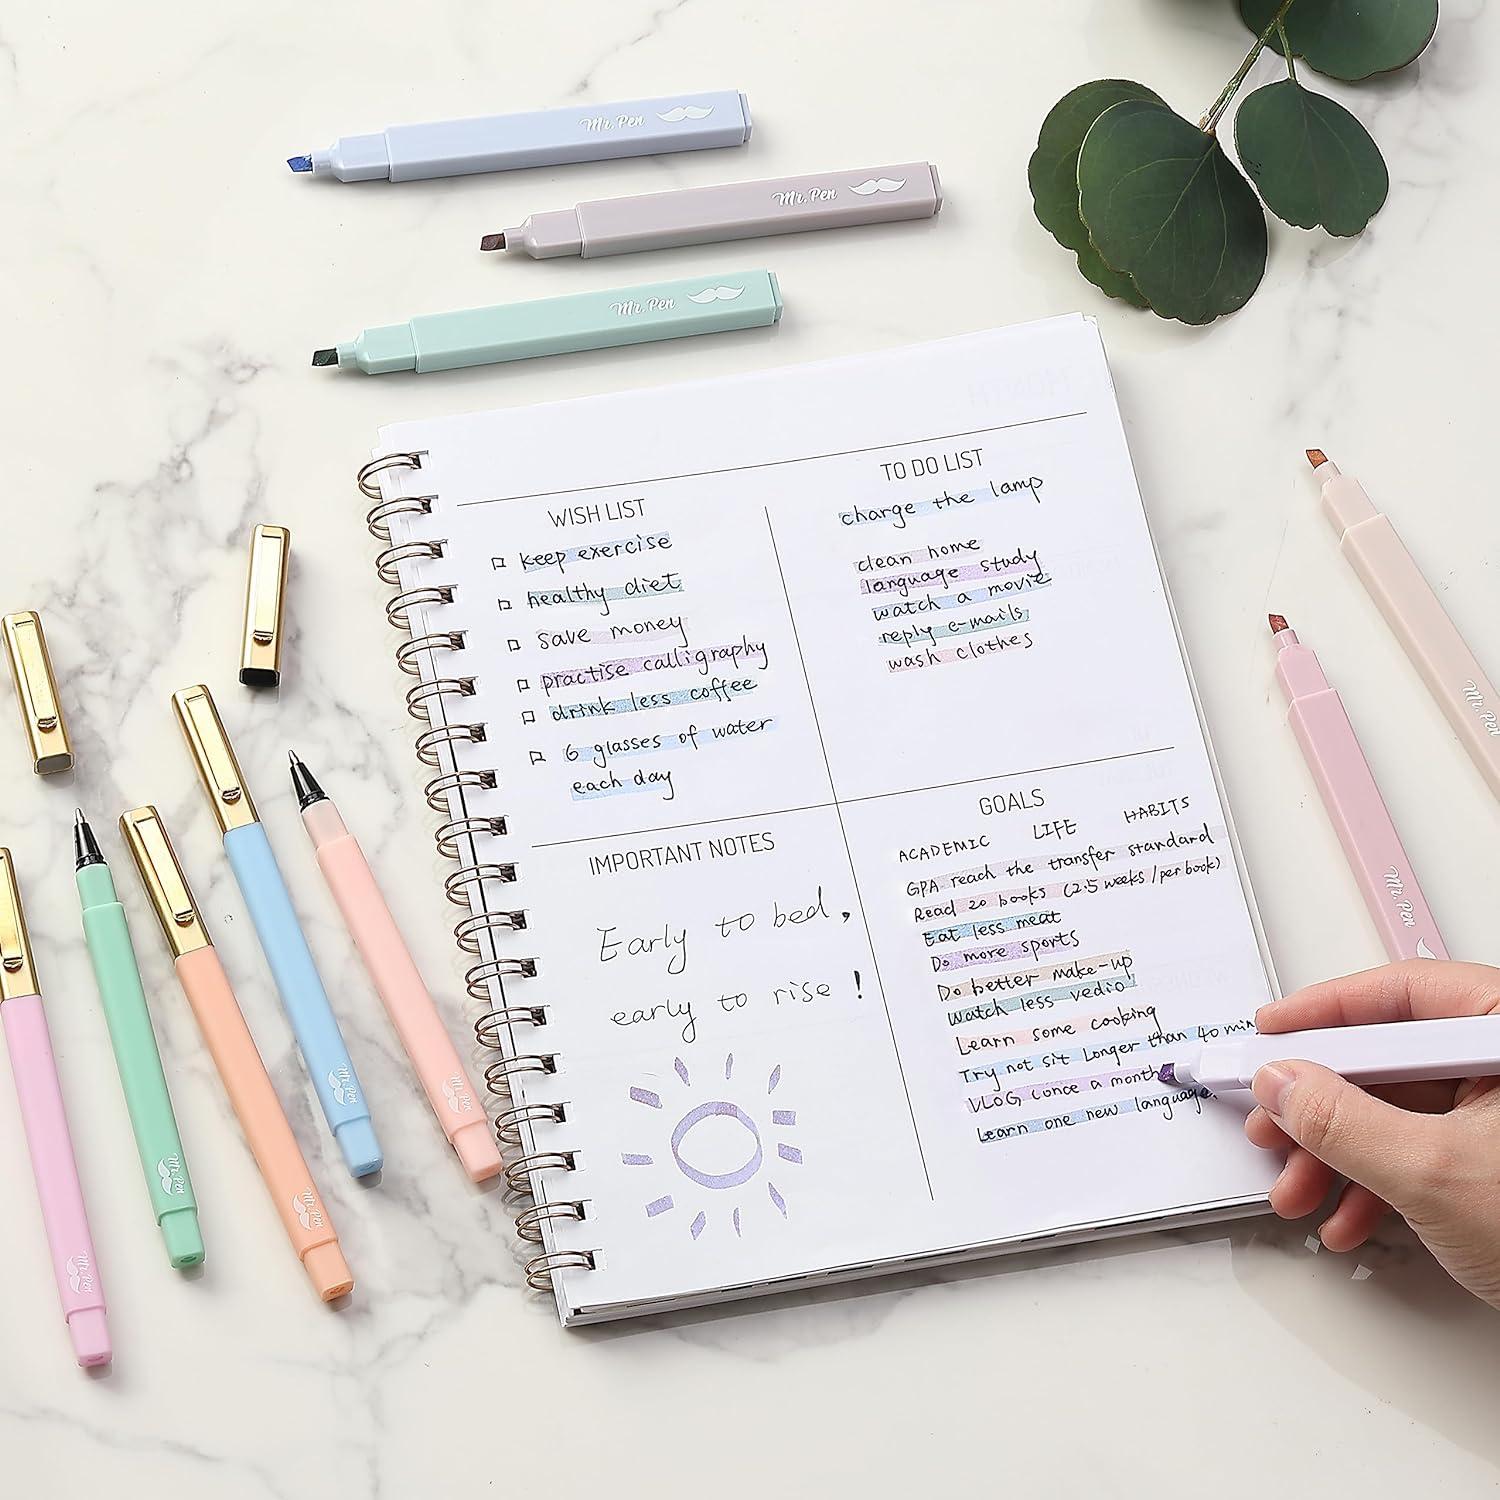 Mr. Pen
Mr. Pen
Mr. Pen
WISH LIST
keep exercise
healthy diet
save money
practise calligraphy
drink less coffee
6 glasses of water
each day
TO DO LIST
charge the lamp
clean home
language study
watch a movie
reply e-mails
wash clothes
IMPORTANT NOTES
Early to bed,
early to rise !
GOALS
ACADEMIC LIFE HABITS
GPA reach the transfer standard
Read 20 books (2.5 weeks / per book)
Eat less meat
Do more sports
Do better make-up
Watch less vedio
Learn some cooking
Try not sit longer than 40 min
VLOG (once a month
Learn one new language.
Mr. Pen
Mr. Pen
Mr. Pen
Mr. Pen
Mr. Pen
Mr. Pen
Mr. Pen